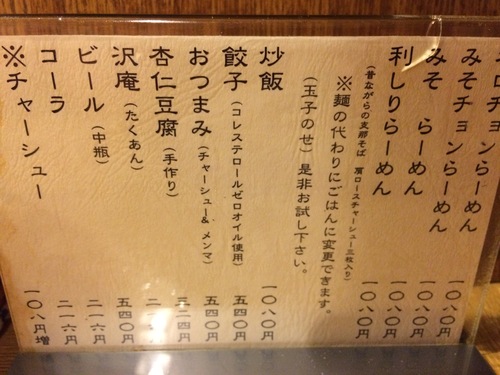 ロチョンらーめん
みそチョンらーめん
みそ らーめん
利しりらーめん
(昔ながらの支那そば 肩ロースチャーシュー三枚入り)
一〇八〇円
一〇八〇円
一〇八〇円
一〇八〇円
※麺の代わりにごはんに変更できます。
(玉子のせ)是非お試し下さい。
炒飯
一〇八〇円
餃子(コレステロールゼロオイル使用)
五四〇円
おつまみ(チャーシュー&メンマ)
五四〇円
杏仁豆腐(手作り)
三二四円
沢庵(たくあん)
ビール(中瓶)
五四〇円
コーラ
二一六円
二一六円
※チャーシュー
一〇八円増